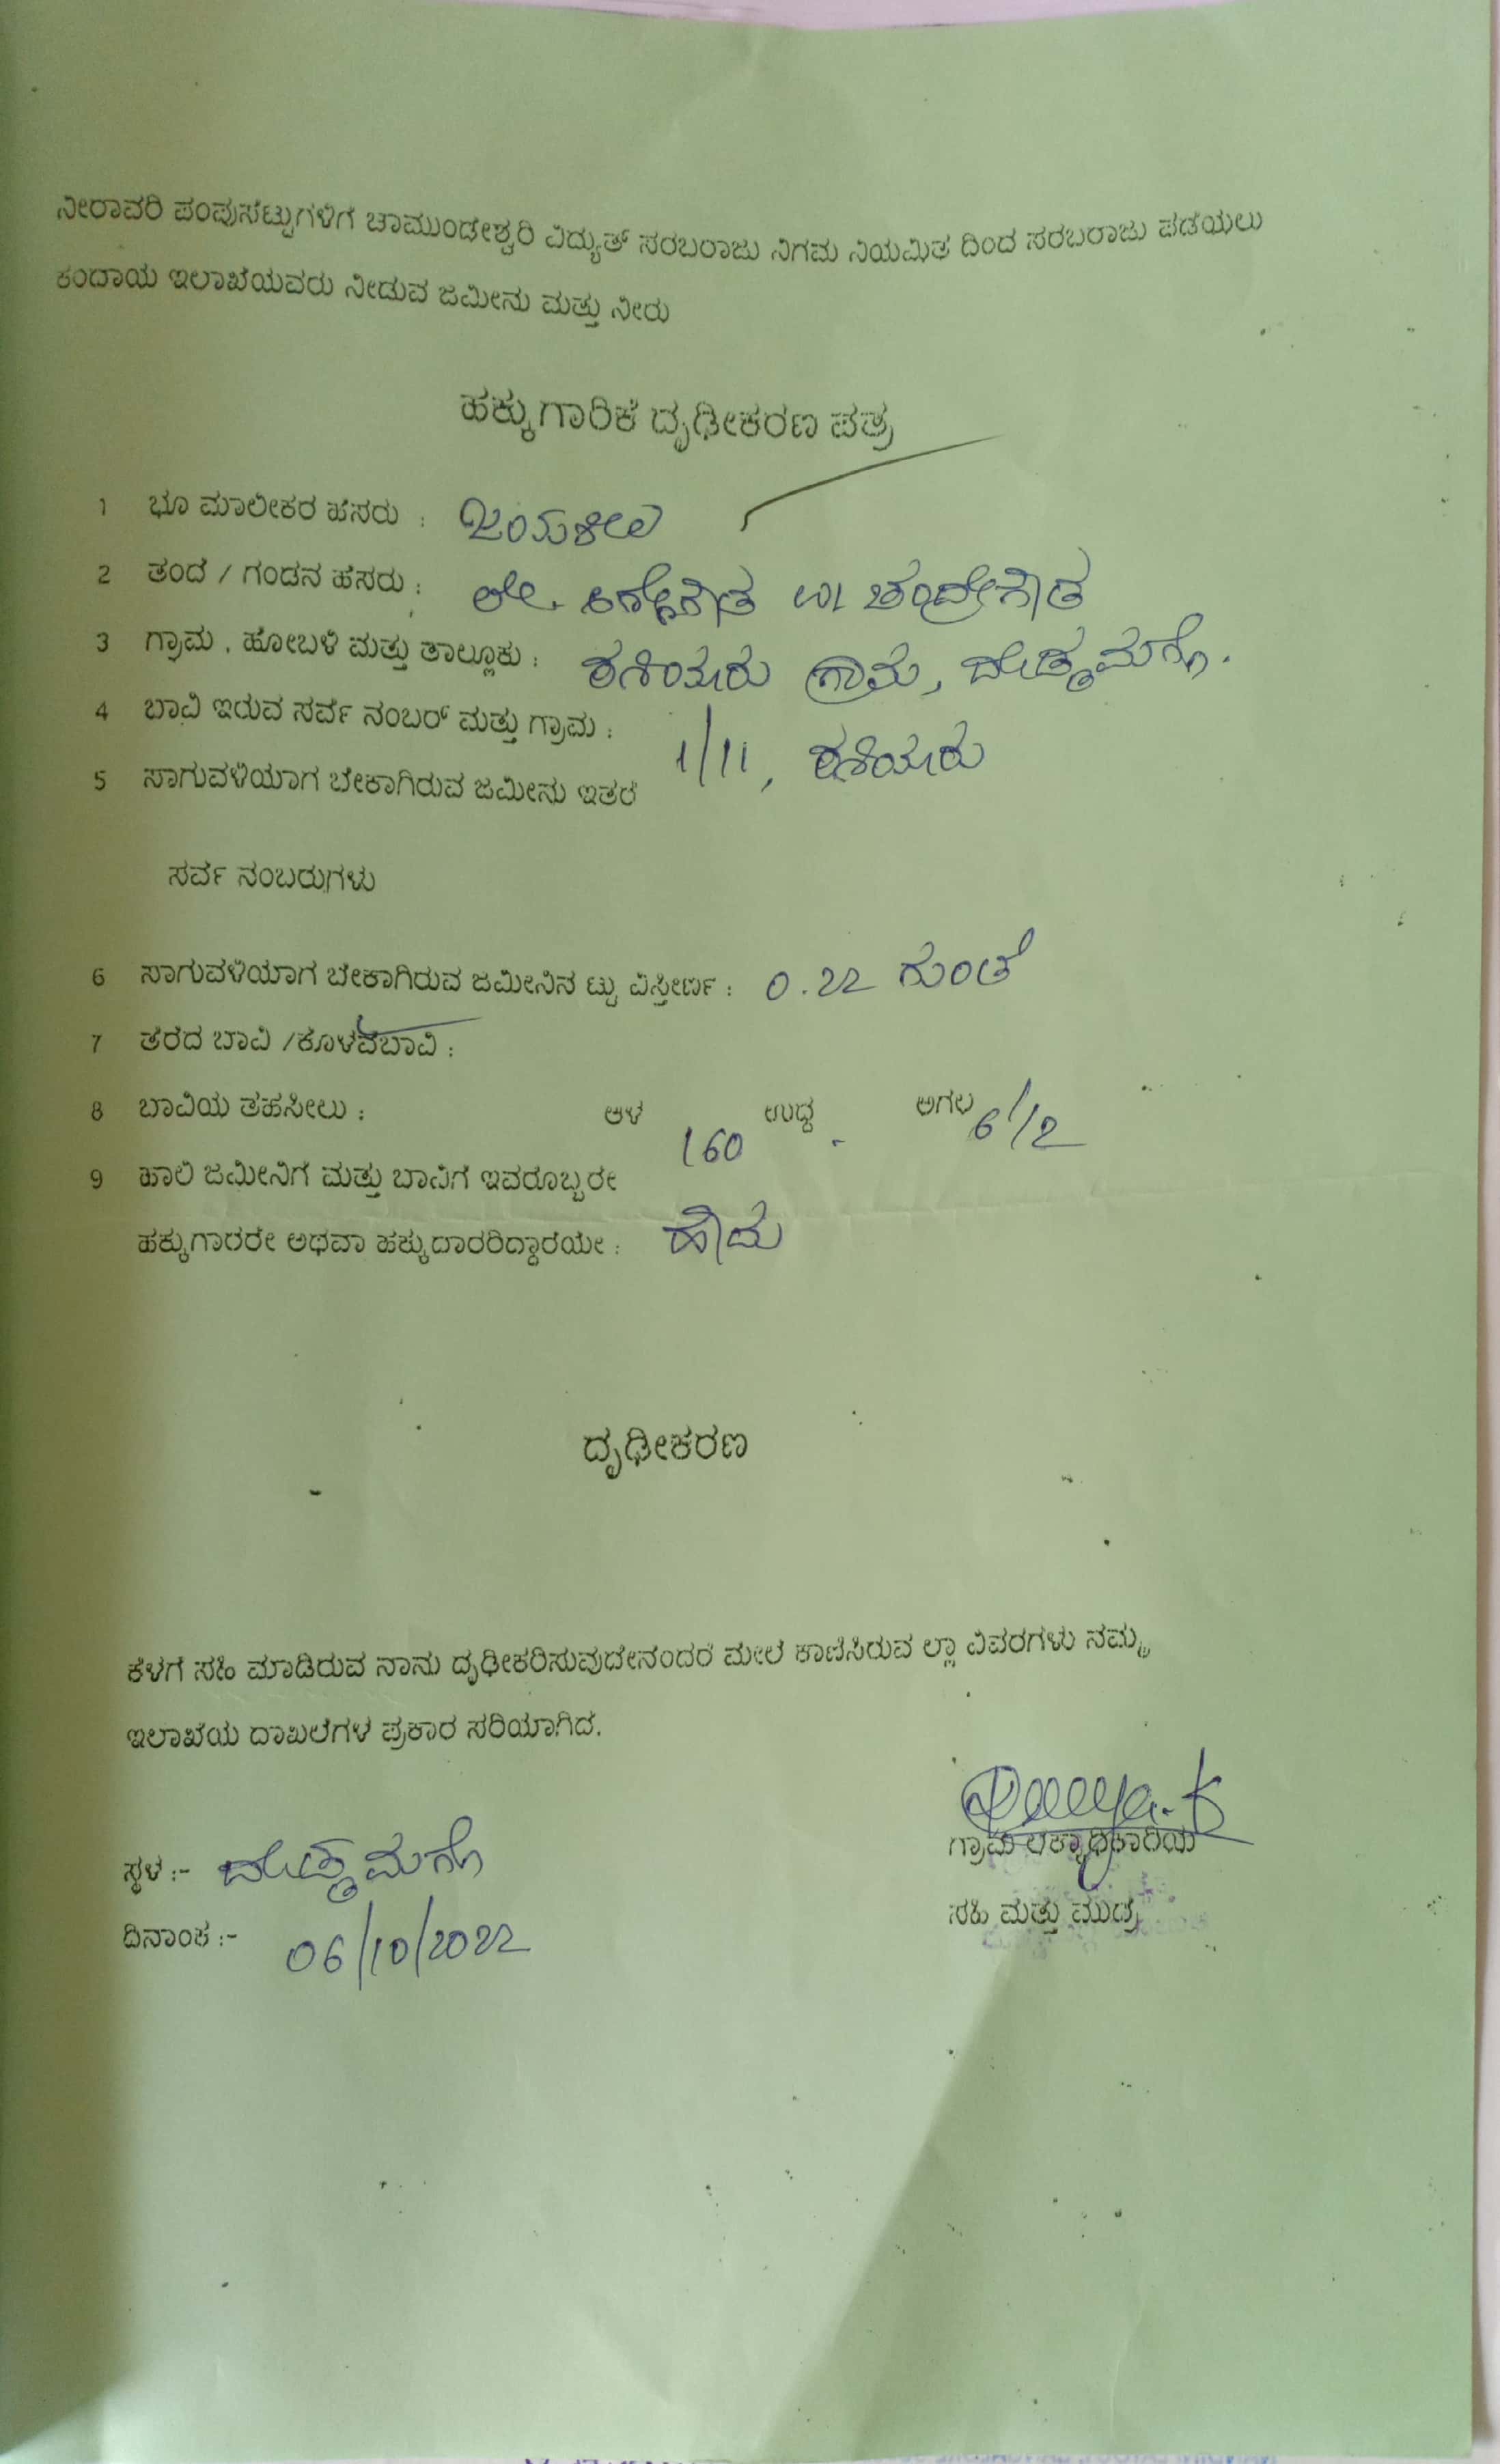 ನೀರಾವರಿ ಪಂಪುಸೆಟ್ಟುಗಳಿಗೆ ಚಾಮುಂಡೇಶ್ವರಿ ವಿದ್ಯುತ್ ಸರಬರಾಜು ನಿಗಮ ನಿಯಮಿತ ದಿಂದ ಸರಬರಾಜು ಪಡೆಯಲು
ಕಂದಾಯ ಇಲಾಖೆಯವರು ನೀಡುವ ಜಮೀನು ಮತ್ತು ನೀರು
ಹಕ್ಕುಗಾರಿಕೆ ದೃಢೀಕರಣ ಪತ್ರ
1 ಭೂ ಮಾಲೀಕರ ಹೆಸರು : ಜಯಶೀಲ
2 ತಂದೆ / ಗಂಡನ ಹೆಸರು : ಲೇ. ಚಂದ್ರೇಗೌಡ
3 ಗ್ರಾಮ , ಹೋಬಳಿ ಮತ್ತು ತಾಲ್ಲೂಕು : ಗ್ರಾಮ,
4 ಬಾವಿ ಇರುವ ಸರ್ವೆ ನಂಬರ್ ಮತ್ತು ಗ್ರಾಮ : 1/11,
5 ಸಾಗುವಳಿಯಾಗ ಬೇಕಾಗಿರುವ ಜಮೀನು ಇತರೆ
ಸರ್ವೆ ನಂಬರುಗಳು
6 ಸಾಗುವಳಿಯಾಗ ಬೇಕಾಗಿರುವ ಜಮೀನಿನ ಟ್ಟು ವಿಸ್ತೀರ್ಣ : 0.22 ಗುಂಟೆ
7 ತೆರೆದ ಬಾವಿ /ಕೊಳವೆಬಾವಿ :
8 ಬಾವಿಯ ತಹಸೀಲು : ಆಳ 160 ಉದ್ದ - ಅಗಲ 6 1/2
9 ಹಾಲಿ ಜಮೀನಿಗೆ ಮತ್ತು ಬಾವಿಗೆ ಇವರೊಬ್ಬರೇ
ಹಕ್ಕುಗಾರರೇ ಅಥವಾ ಹಕ್ಕುದಾರರಿದ್ದಾರೆಯೇ : ಹೌದು
ದೃಢೀಕರಣ
ಕೆಳಗೆ ಸಹಿ ಮಾಡಿರುವ ನಾನು ದೃಢೀಕರಿಸುವುದೇನೆಂದರೆ ಮೇಲೆ ಕಾಣಿಸಿರುವ ಲ್ಲಾ ವಿವರಗಳು ನಮ್ಮ
ಇಲಾಖೆಯ ದಾಖಲೆಗಳ ಪ್ರಕಾರ ಸರಿಯಾಗಿದೆ.
ಸ್ಥಳ :-
ಗ್ರಾಮ ಲೆಕ್ಕಾಧಿಕಾರಿಯ
ಸಹಿ ಮತ್ತು ಮುದ್ರೆ
ದಿನಾಂಕ :- 06/10/2022